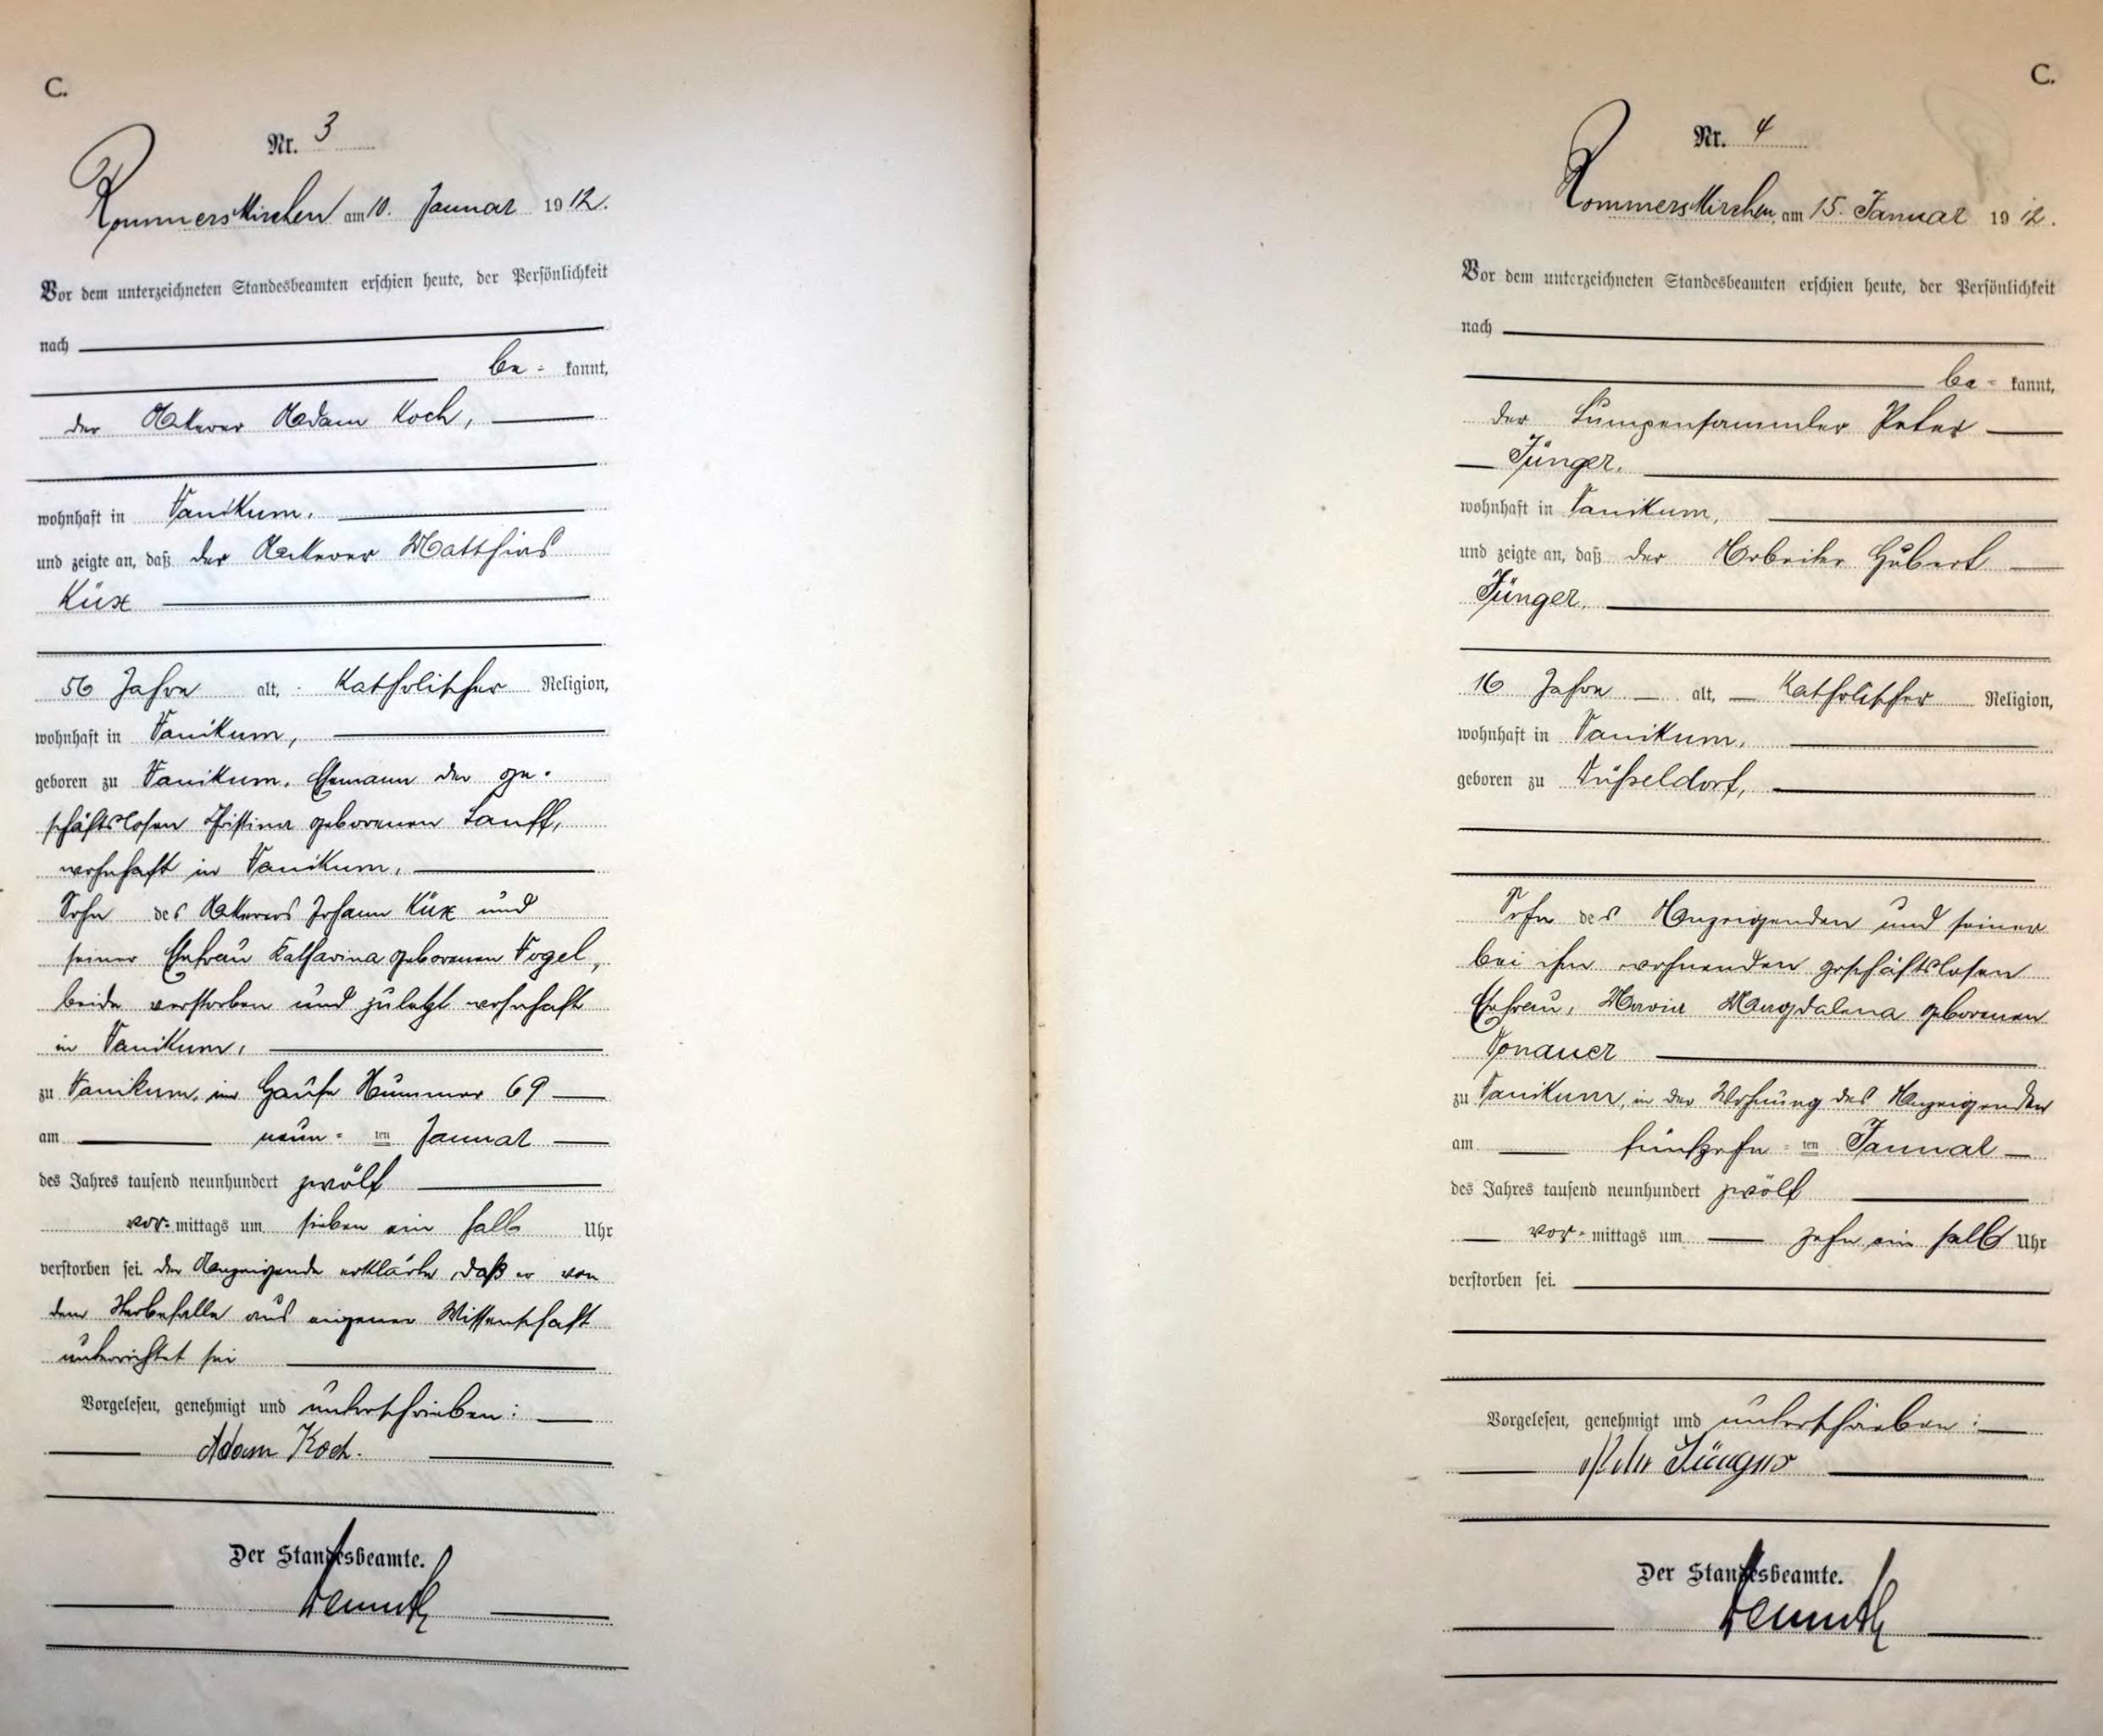 C.
Nr. 3
Rommerskirchen am 10. Januar 1912.
Vor dem unterzeichneten Standesbeamten erschien heute, der Persönlichkeit
nach
be= kannt,
der Ackerer Adam Koch,
wohnhaft in Vanikum.
und zeigte an, daß der Ackerer Matthias
Küx
56 Jahre alt, katholischer Religion,
wohnhaft in Vanikum,
geboren zu Vanikum, Ehemann der ge-
schäftslosen Christina geborenen Lauff,
wohnhaft in Vanikum,
Sohn des Ackerers Johann Küx und
seiner Ehefrau Katharina geborenen Vogel,
beide verstorben und zuletzt wohnhaft
in Vanikum,
zu Vanikum, im Hause Nummer 69
am neun= ten Januar
des Jahres tausend neunhundert zwölf
vor= mittags um sieben ein halb Uhr
verstorben sei. Der Anzeigende erklärte, daß er von
dem Sterbefalle aus eigener Wissenschaft
unterrichtet sei
Vorgelesen, genehmigt und unterschrieben:
Adam Koch.
Der Standesbeamte.
C.
Nr. 4
Rommerskirchen, am 15. Januar 1912.
Vor dem unterzeichneten Standesbeamten erschien heute, der Persönlichkeit
nach
be= kannt,
der Lumpensammler Peter
Jünger.
wohnhaft in Vanikum,
und zeigte an, daß der Arbeiter Hubert
Jünger.
16 Jahre alt, katholischer Religion,
wohnhaft in Vanikum,
geboren zu Düsseldorf,
Sohn des Anzeigenden und seiner
bei ihm wohnenden geschäftslosen
Ehefrau, Maria Magdalena geborenen
Donauer
zu Vanikum, in der Wohnung des Anzeigenden
am fünfzehn= ten Januar
des Jahres tausend neunhundert zwölf
vor= mittags um zehn ein halb Uhr
verstorben sei.
Vorgelesen, genehmigt und unterschrieben:
Peter Jünger
Der Standesbeamte.